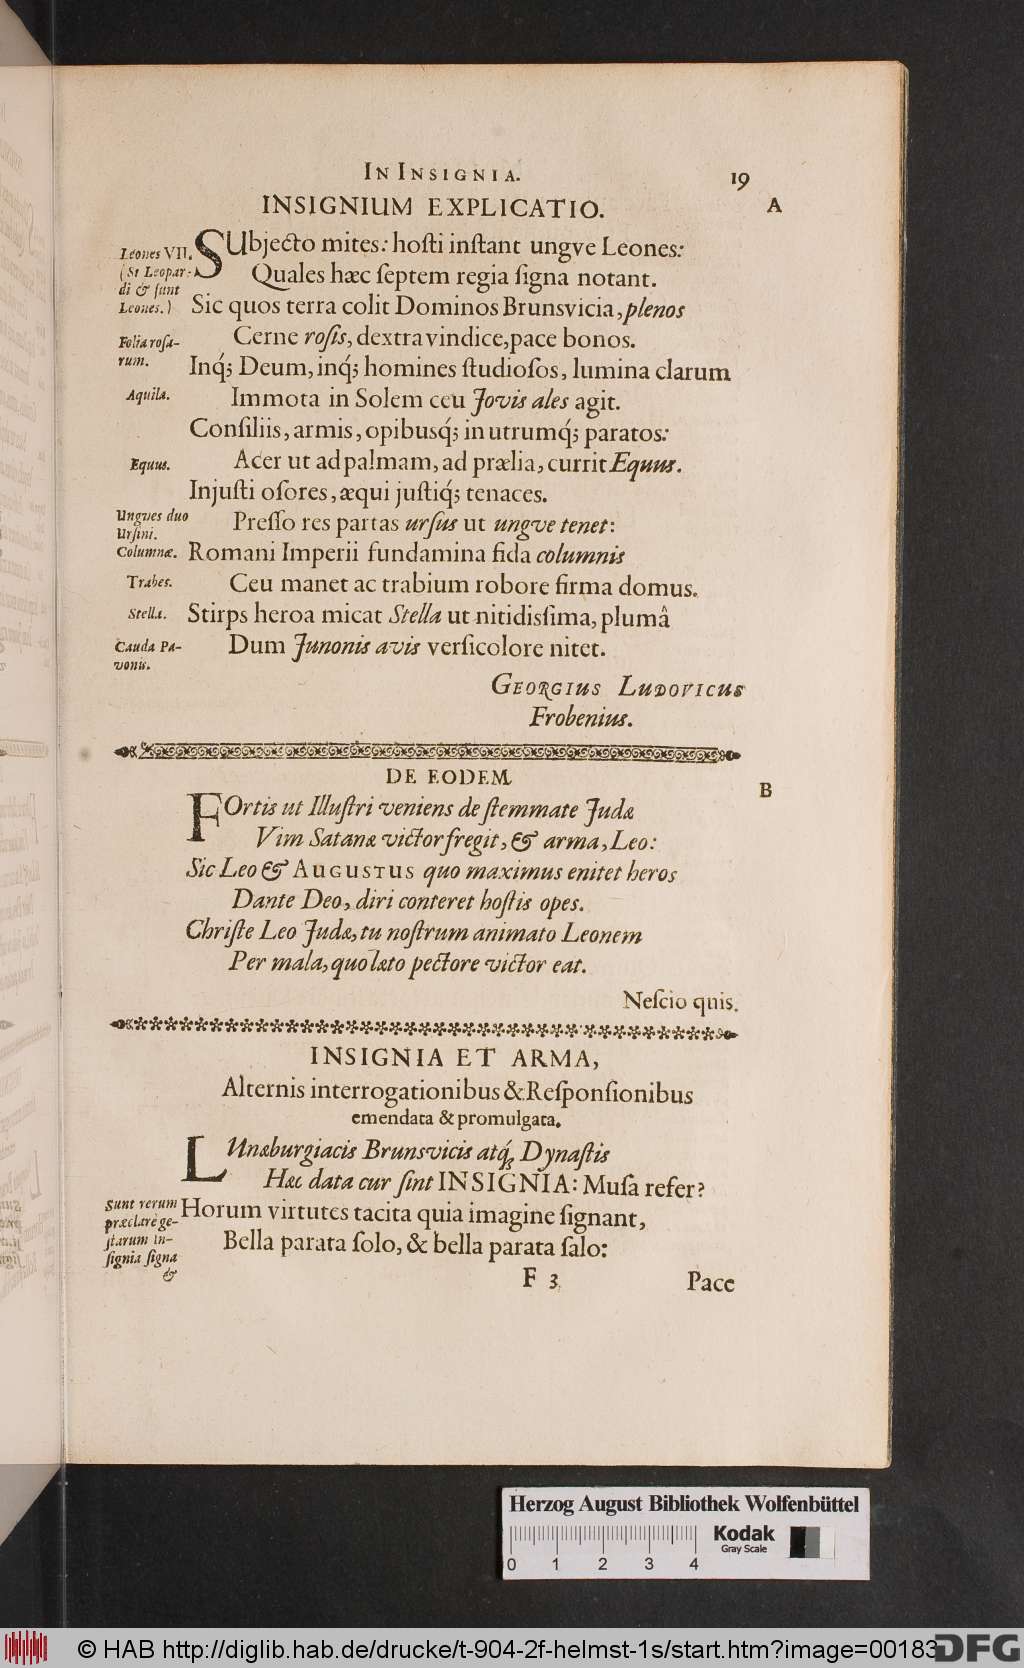 IN INSIGNIA. 19
INSIGNIUM EXPLICATIO. A
SUbjecto mites: hosti instant ungve Leones:
Leones VII.
(Si Leopar-
di & sunt
Leones.)
Quales hæc septem regia signa notant.
Sic quos terra colit Dominos Brunsvicia, plenos
Folia rosa-
rum.
Cerne rosis, dextra vindice, pace bonos.
Inq́; Deum, inq́; homines studiosos, lumina clarum
Aquila.
Immota in Solem ceu Jovis ales agit.
Consiliis, armis, opibusq́; in utrumq́; paratos:
Equus.
Acer ut ad palmam, ad prælia, currit Equus.
Injusti osores, æqui justiq́; tenaces.
Ungues duo
Ursini.
Presso res partas ursus ut ungve tenet:
Columnæ.
Romani Imperii fundamina fida columnis
Trabes.
Ceu manet ac trabium robore firma domus.
Stella.
Stirps heroa micat Stella ut nitidissima, plumâ
Cauda Pa-
vonis.
Dum Junonis avis versicolore nitet.
GEORGIUS LUDOVICUS
Frobenius.
DE EODEM B
FOrtis ut Illustri veniens de stemmate Judæ
Vim Satanæ victor fregit, & arma, Leo:
Sic Leo & AUGUSTUS quo maximus enitet heros
Dante Deo, diri conteret hostis opes.
Christe Leo Judæ, tu nostrum animato Leonem
Per mala, quo læto pectore victor eat.
Nescio quis.
INSIGNIA ET ARMA,
Alternis interrogationibus & Responsionibus
emendata & promulgata.
LUnæburgiacis Brunsvicis atq́; Dynastis
Hæc data cur sint INSIGNIA: Musa refer?
Sunt rerum
præclarè ge-
starum in-
signia signa
&
Horum virtutes tacita quia imagine signant,
Bella parata solo, & bella parata salo:
F 3 Pace
Herzog August Bibliothek Wolfenbüttel
Kodak
Gray Scale
0 1 2 3 4
© HAB http://diglib.hab.de/drucke/t-904-2f-helmst-1s/start.htm?image=00183
DFG